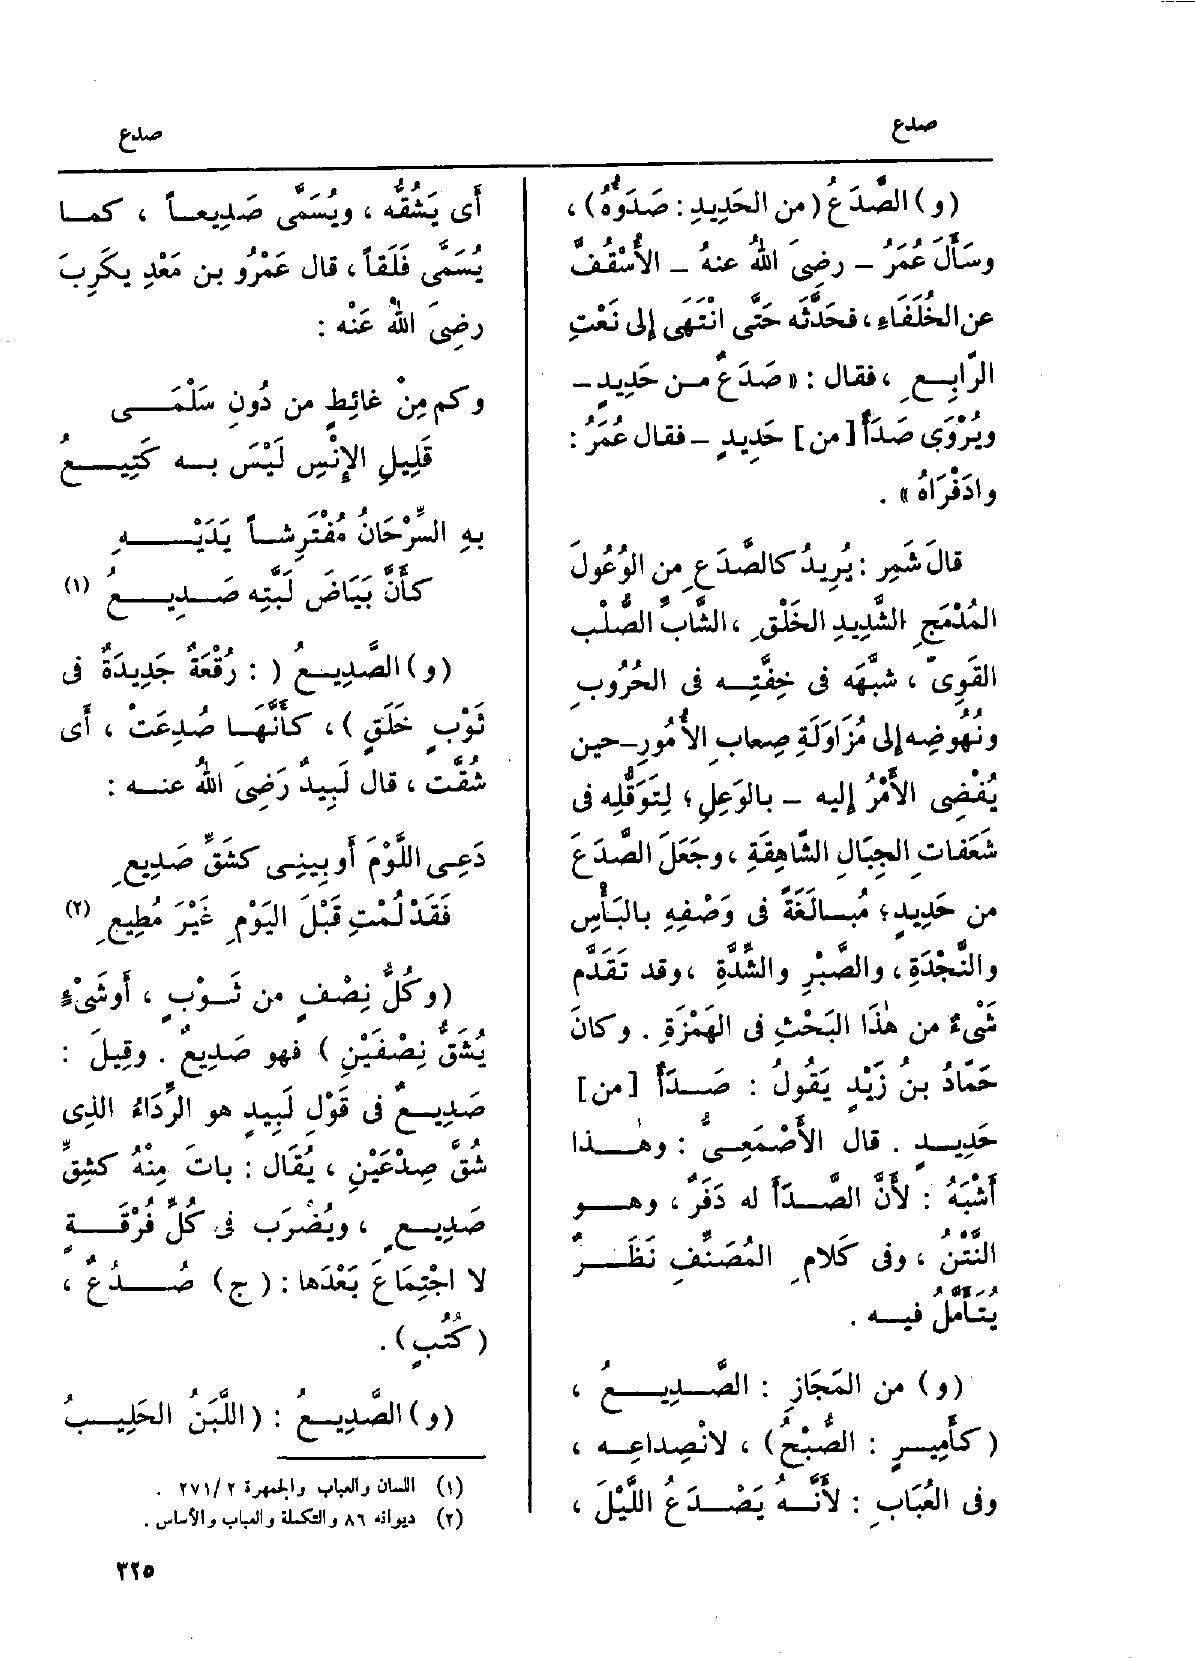 صدع
صدع
(و) الصَّدَعُ (من الحَدِيدِ : صَدَؤُه) ،
وسَأَلَ عُمَرُ – رضِىَ اللهُ عنهُ – الأُسْقُفَّ
عن الخُلَفَاءِ ، فحَدَّثَه حَتَّى انْتَهَى إلى نَعْتِ
الرّابِـعِ ، فقال : «صَدَعٌ مـن حَدِيدٍ –
ويُرْوَى صَدَأٌ [من] حَدِيدٍ – فقال عُمَرُ :
وادَفْرَاهُ» .
قالَ شَمِر : يُرِيدُ كالصَّدَعِ من الوُعُولَ
المُدْمَجِ الشَّدِيدِ الخَلْقِ ، الشَّابِّ الصُّلْبِ
القَوِىِّ ، شبَّهَه فى خِفَّتِـه فى الحُرُوبِ
ونُهُوضِه إلى مُزَاوَلَةِ صِعابِ الأُمُورِ – حين
يُفْضِى الأَمْرُ إليه – بالوَعِلِ ؛ لِتَوَقُّلِه فى
شَعَفاتِ الجِبَالِ الشّاهِقَةِ ، وجَعَلَ الصَّدَعَ
من حَدِيدٍ ؛ مُبـالَغَةً فى وَصْفِهِ بالبَأْسِ
والنَّجْدَةِ ، والصَّبْرِ والشِّدَّةِ ، وقد تَقَدَّم
شَىْءٌ من هٰذَا البَحْثِ فى الهَمْزَةِ . وكانَ
حَمّادُ بنُ زَيْدٍ يَقُولُ : صَـدَأٌ [من]
حَدِيـدٍ . قال الأَصْمَعِىُّ : وهٰـذا
أَشْبَهُ : لأَنَّ الصَّـدَأَ له دَفَرٌ ، وهـو
النَّتْنُ ، وفى كَلامِ المُصَنِّفِ نَظَـرٌ
يُتَأَمَّلُ فيـه .
(و) من المَجَازِ : الصَّـدِيـعُ ،
(كأَمِيـرٍ : الصُّبْحُ) ، لانْصِداعِـه ،
وفى العُبَابِ : لأَنَّـهُ يَصْـدَعُ اللَّيْلَ ،
أى يَشُقُّه ، ويُسَمَّى صَدِيعـاً ، كمـا
يُسَمَّى فَلَقاً ، قال عَمْرُو بن مَعْدِ يكَرِبَ
رضِىَ اللهُ عَنْه :
وكم مِنْ غائِطٍ من دُونِ سَلْمَـى
قَلِيلِ الإِنْسِ لَيْسَ بـه كَتِيـعُ
بهِ السِّرْحَانُ مُفْتَرِشـاً يَدَيْـهِ
كأَنَّ بَيَاضَ لَبَّتِه صَـدِيـعُ (١)
(و) الصَّدِيـعُ ( : رُقْعَةٌ جَدِيدَةٌ فى
ثَوْبٍ خَلَقٍ) ، كأَنَّهَـا صُدِعَتْ ، أَى
شُقَّت ، قال لَبِيدٌ رَضِىَ اللهُ عنـه :
دَعِـى اللَّوْمَ أَو بِينِـى كشَقِّ صَدِيعِ
فَقَدْ لُمْتِ قَبْلَ اليَوْمِ غَيْرَ مُطِيعِ (٢)
(وكُلُّ نِصْفٍ من ثَـوْبٍ ، أَو شَىْءٍ
يُشَقُّ نِصْفَيْنِ) فهو صَدِيعٌ . وقِيلَ :
صَدِيـعٌ فى قَوْلِ لَبِيدٍ هو الرِّدَاءُ الذى
شُقَّ صِدْعَيْنِ ، يُقَال : باتَ مِنْهُ كشِقِّ
صَدِيـعٍ ، ويُضْرَب فى كُلِّ فُرْقَـةٍ
لا اجْتِمَاعَ بَعْدَها : (ج) صُـدُعٌ ،
(كُتُبٍ) .
(و) الصَّدِيـعُ : (اللَّبَنُ الحَلِيـبُ
(١) اللسان والعباب والجمهرة ٢ / ٢٧١ .
(٢) ديوانه ٨٦ والتكملة والعباب والأساس .
٣٢٥